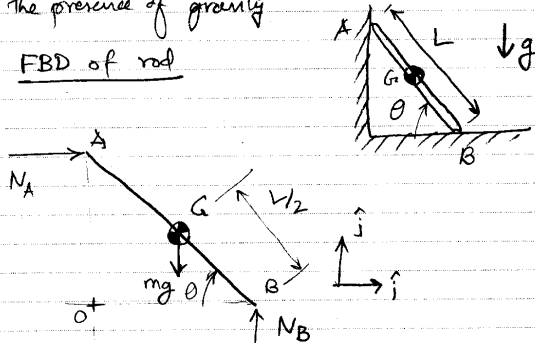 the presence of gravity
FBD of rod
A
L
↓g
G
θ
B
A
N_A
G
L/2
mg
θ
B
ĵ
î
O
N_B